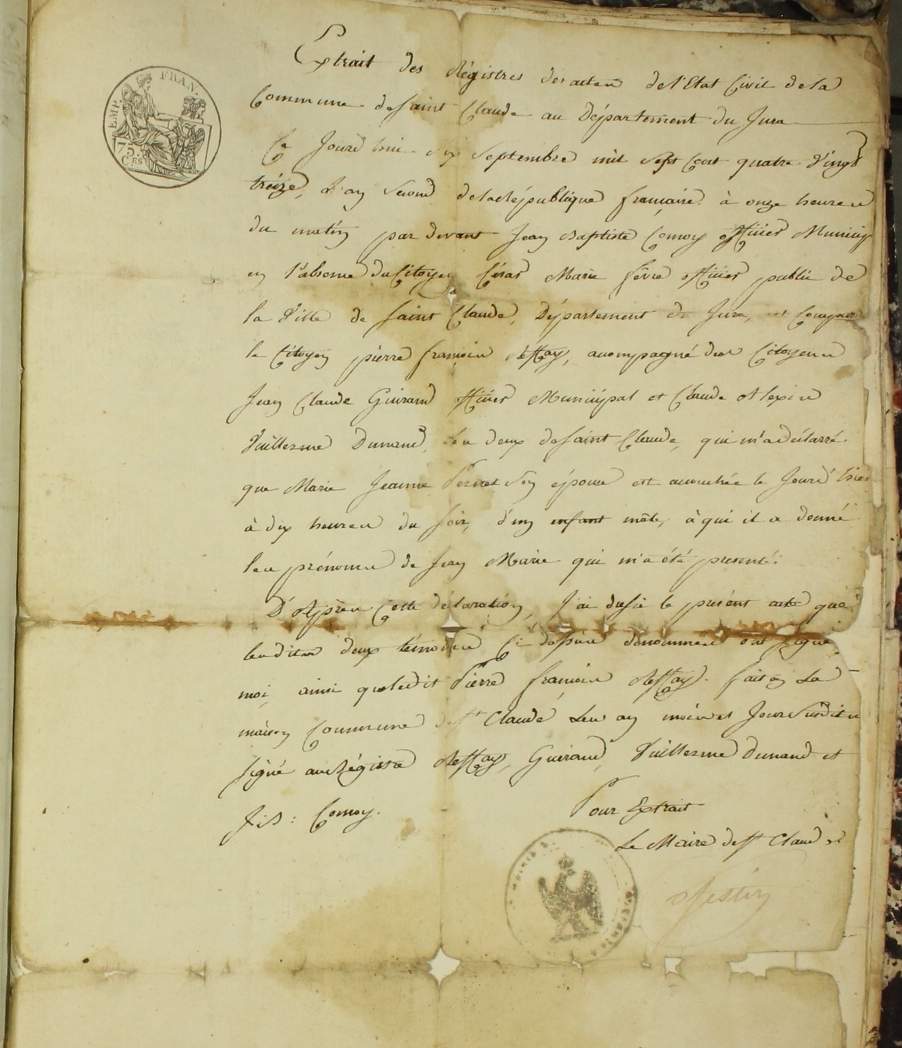 EMP. FRAN.
75
CES
Extrait des Régistres des actes de l'Etat Civil de la
Commune de Saint Claude au Département du Jura
Ce Jourd'hui dix Septembre mil Sept Cent quatre Vingt
treize, L'an Second de la République française à onze heures
du matin par devant Jean Baptiste Comoy Officier Municip
en l'absence du Citoyen César Marie fêvre officier public de
la Ville de Saint Claude, Département du Jura, est Comparu
le Citoyen pierre françois, acompagné des Citoyens
Jean Claude Guirand officier Municipal et Claude Alexis
Vuillerme Dunand, les deux de Saint Claude, qui m'a déclarré
que Marie Jeanne Son épouse est accouchée le Jourd'hier
à dix heures du Soir, d'un enfant mâle, à qui il a donné
les prénoms de Jean Marie qui m'a été presenté.
D'Après Cette déclaration, J'ai dressé le présent acte que
lesdits deux témoins Ci dessus dénommés ont Signé
moi, ainsi que ledit Pierre françois. fait en La
maison Commune de St Claude Les an mois et Jour Susdits
Signé au Régistre, Guirand, Vuillerme Dunand et
J.B: Comoy.
Pour Extrait
Le Maire de St Claude